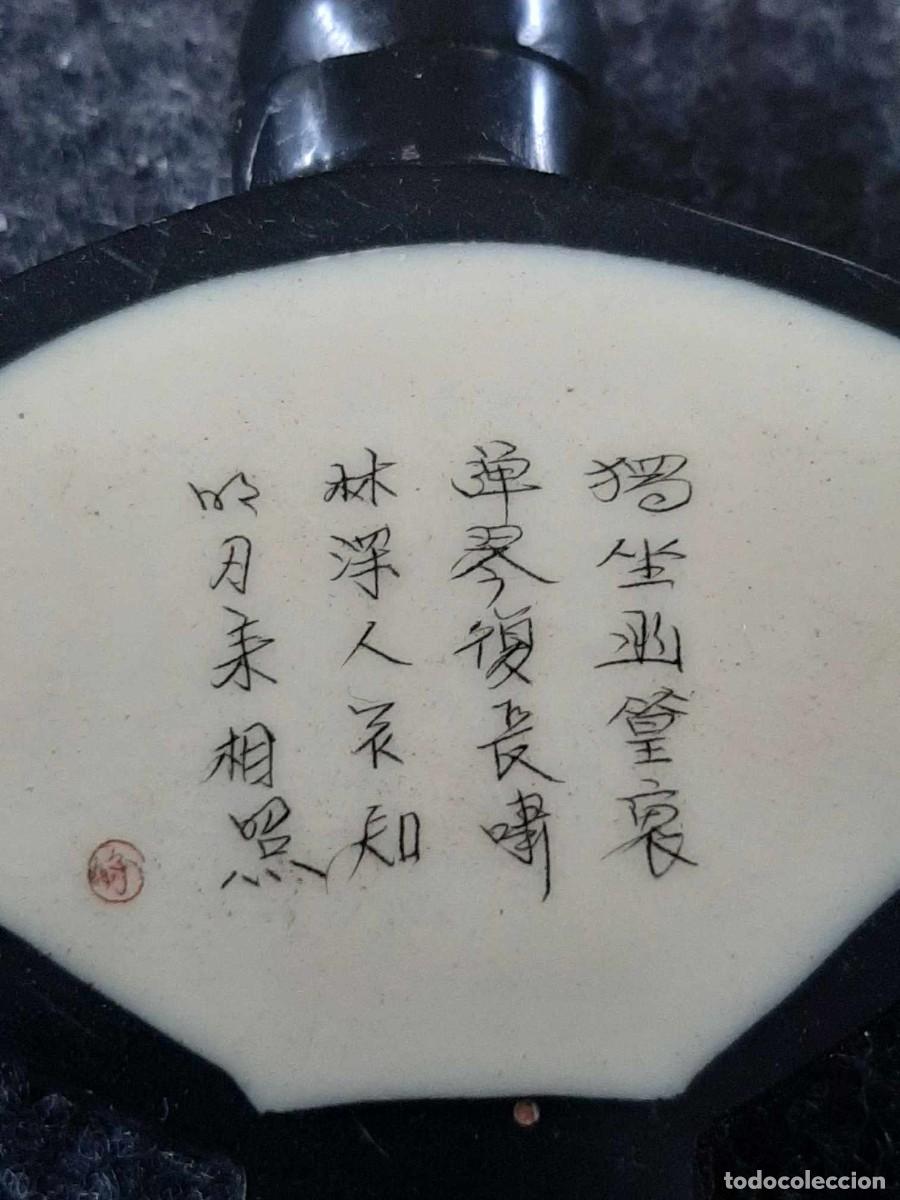 獨坐幽篁裏
弹琴復長嘯
林深人不知
明月来相照
todocoleccion